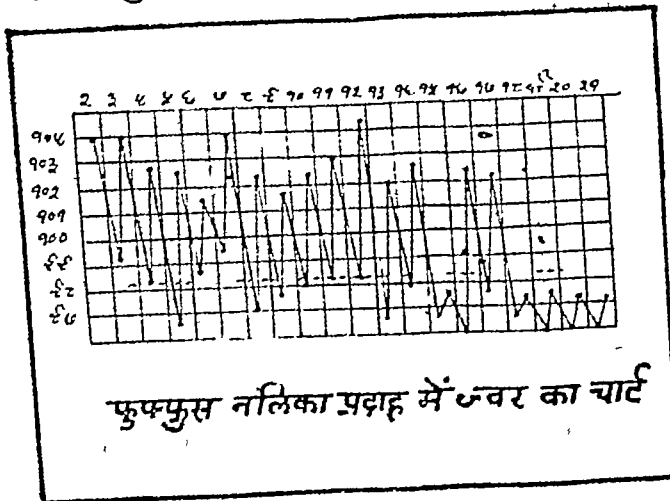 २ ३ ४ ५ ६ ७ ८ ९ १० ११ १२ १३ १४ १५ १६ १७ १८ १९ २० २१
१०४
१०३
१०२
१०१
१००
९९
९८
९७
फुफ्फुस नलिका प्रदाह में ज्वर का चार्ट